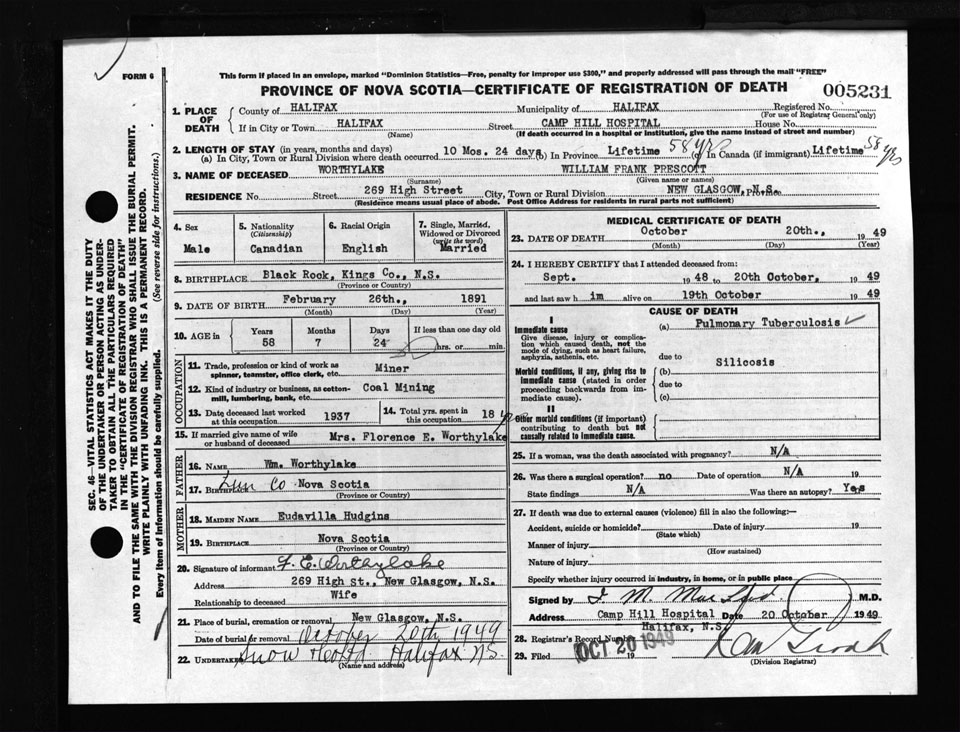 FORM 6
This form if placed in an envelope, marked "Dominion Statistics—Free, penalty for improper use $300," and properly addressed will pass through the mail "FREE"
PROVINCE OF NOVA SCOTIA—CERTIFICATE OF REGISTRATION OF DEATH
005231
1. PLACE OF DEATH
County of HALIFAX Municipality of HALIFAX Registered No.
(For use of Registrar General only)
If in City or Town HALIFAX Street CAMP HILL HOSPITAL House No.
(Name) (If death occurred in a hospital or institution, give the name instead of street and number)
2. LENGTH OF STAY (in years, months and days)
(a) In City, Town or Rural Division where death occurred 10 Mos. 24 days (b) In Province Lifetime 58 yrs (c) In Canada (if immigrant) Lifetime 58 yrs
3. NAME OF DECEASED WORTHYLAKE WILLIAM FRANK PRESCOTT
(Surname) (Given name or names)
RESIDENCE No. Street 269 High Street City, Town or Rural Division NEW GLASGOW, N.S. Province
(Residence means usual place of abode. Post Office Address for residents in rural parts not sufficient)
SEC. 46—VITAL STATISTICS ACT MAKES IT THE DUTY
OF THE UNDERTAKER OR PERSON ACTING AS UNDER-
TAKER TO OBTAIN ALL THE PARTICULARS REQUIRED
IN THE "CERTIFICATE OF REGISTRATION OF DEATH"
AND TO FILE THE SAME WITH THE DIVISION REGISTRAR WHO SHALL ISSUE THE BURIAL PERMIT.
WRITE PLAINLY WITH UNFADING INK. THIS IS A PERMANENT RECORD.
Every item of Information should be carefully supplied. (See reverse side for instructions.)
4. Sex Male
5. Nationality (Citizenship) Canadian
6. Racial Origin English
7. Single, Married, Widowed or Divorced (write the word) Married
8. BIRTHPLACE Black Rock, Kings Co., N.S.
(Province or Country)
9. DATE OF BIRTH February 26th., 1891
(Month) (Day) (Year)
10. AGE in Years 58 Months 7 Days 24 If less than one day old hrs. or min.
OCCUPATION
11. Trade, profession or kind of work as spinner, teamster, office clerk, etc. Miner
12. Kind of industry or business, as cotton-mill, lumbering, bank, etc. Coal Mining
13. Date deceased last worked at this occupation 1937
14. Total yrs. spent in this occupation 18 yrs
15. If married give name of wife or husband of deceased Mrs. Florence E. Worthylake
FATHER
16. NAME Wm. Worthylake
17. BIRTHPLACE Lun Co Nova Scotia
(Province or Country)
MOTHER
18. MAIDEN NAME Eudavilla Hudgins
19. BIRTHPLACE Nova Scotia
(Province or Country)
20. Signature of informant F. E. Worthylake
Address 269 High St., New Glasgow, N.S.
Relationship to deceased Wife
21. Place of burial, cremation or removal New Glasgow, N.S.
Date of burial or removal October 20th 1949
22. UNDERTAKER Snow Halifax N.S.
(Name and address)
MEDICAL CERTIFICATE OF DEATH
23. DATE OF DEATH October 20th., 1949
(Month) (Day) (Year)
24. I HEREBY CERTIFY that I attended deceased from:
Sept. 1948 to 20th October, 1949
and last saw h im alive on 19th October 1949
CAUSE OF DEATH
I
Immediate cause
Give disease, injury or complication which caused death, not the mode of dying, such as heart failure, asphyxia, asthenia, etc.
(a) Pulmonary Tuberculosis
due to
Morbid conditions, if any, giving rise to immediate cause (stated in order proceeding backwards from immediate cause).
(b) Silicosis
due to
(c)
II
Other morbid conditions (if important) contributing to death but not causally related to immediate cause.
25. If a woman, was the death associated with pregnancy? N/A
26. Was there a surgical operation? no Date of operation N/A 19
State findings N/A Was there an autopsy? Yes
27. If death was due to external causes (violence) fill in also the following:—
Accident, suicide or homicide? Date of injury 19
(State which)
Manner of injury
(How sustained)
Nature of injury
Specify whether injury occurred in industry, in home, or in public place
Signed by M.D.
Address Camp Hill Hospital Date 20 October 1949
Halifax, N.S.
28. Registrar's Record Number
29. Filed OCT 20 1949 19
(Division Registrar)